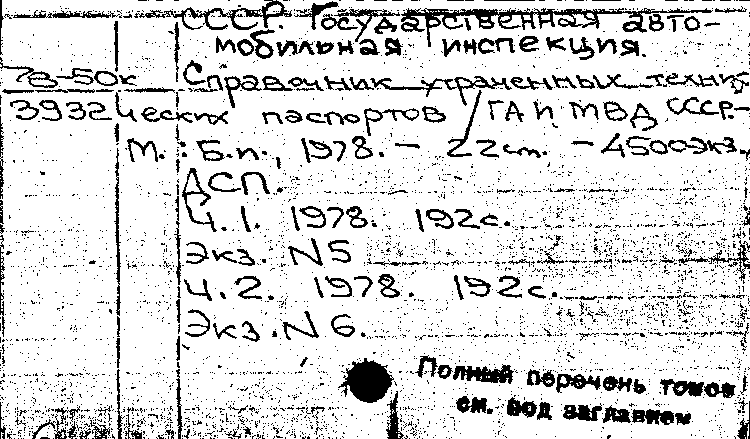 СССР. Государственная авто-
мобильная инспекция.
78-50к Справочник утраченных техни-
3932 ческих паспортов / ГАИ МВД СССР.-
М.: Б.и., 1978. - 22см. - 4500экз.,
ДСП.
Ч.1. 1978. 192с.
Экз. N5
Ч.2. 1978. 192с.
Экз. N6.
Полный перечень томов
см. под заглавием